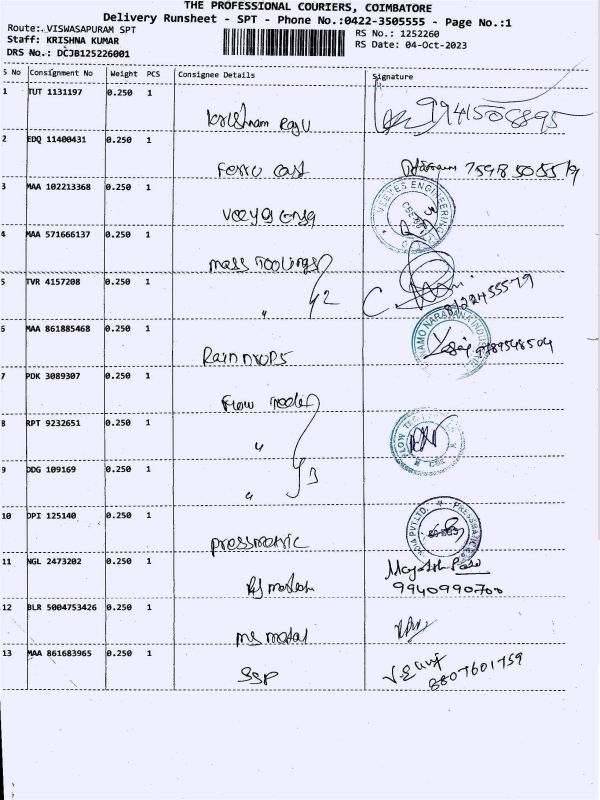 THE PROFESSIONAL COURIERS, COIMBATORE
Delivery Runsheet - SPT - Phone No.:0422-3505555 - Page No.:1
Route: VISWASAPURAM SPT
Staff: KRISHNA KUMAR
DRS No.: DCJB125226001
RS No.: 1252260
RS Date: 04-Oct-2023
S No Consignment No Weight PCS Consignee Details Signature
1 TUT 1131197 0.250 1
Krishnam Raju 9941508895
2 EDQ 11400431 0.250 1
Ferro Cast 7598505579
3 MAA 102213368 0.250 1
VEEYES ENGINEERING
4 MAA 571666137 0.250 1
mass Toolings
5 TVR 4157208 0.250 1
" 2 8122455579
6 MAA 861885468 0.250 1
NAMO NARAYANA INDUSTRIES
Rain Drops 9789548504
7 PDK 3089307 0.250 1
Flow
8 RPT 9232651 0.250 1
" FLOW
9 DDG 109169 0.250 1
" 3
10 DPI 125140 0.250 1
INDIA PVT.LTD. * PRESSMATRIC
pressmatric
11 NGL 2473202 0.250 1
9940990700
12 BLR 5004753426 0.250 1
ms metal
13 MAA 861683965 0.250 1
SSP 8807601759